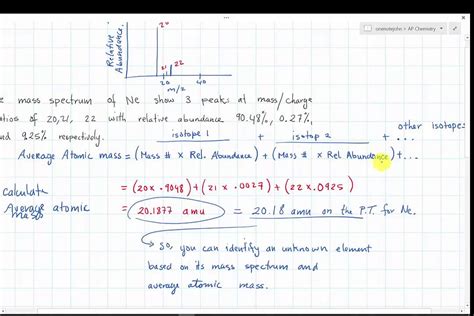 onenotejohn > AP Chemistry
Relative
Abundance.
20
21 22
20 40
m/z
mass spectrum of Ne show 3 peaks at mass/charge
ratios of 20,21, 22 with relative abundance 90.48%, 0.27%,
9.25% respectively.
isotope 1 + isotop 2 + other isotopes
Average Atomic mass = (Mass # x Rel. Abundance) + (Mass # x Rel Abundance) + ...
Calculate
Average atomic
mass
= (20 x .9048) + (21 x .0027) + (22 x .0925)
= 20.1877 amu = 20.18 amu on the P.T. for Ne.
So, you can identify an unknown element
based on its mass spectrum and
average atomic mass.